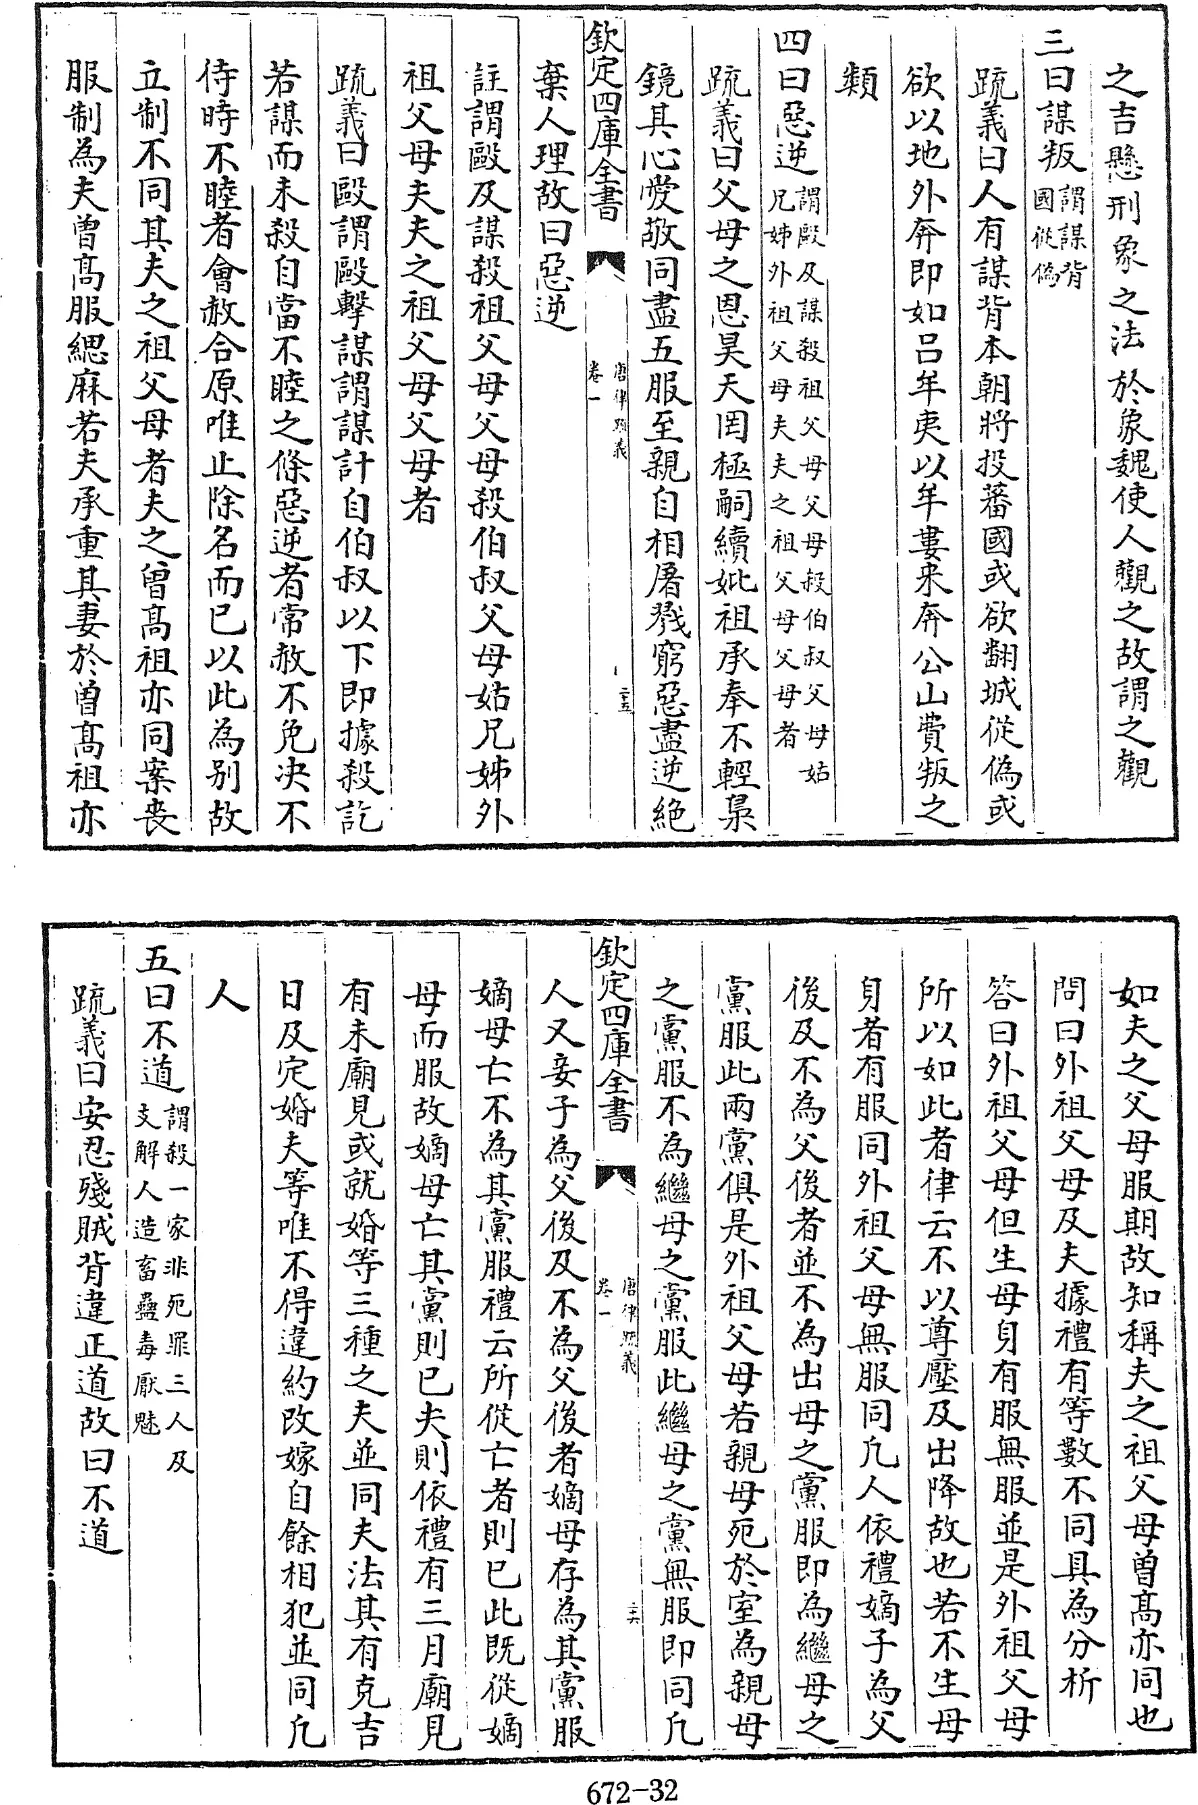 之吉懸刑象之法於象魏使人觀之故謂之觀
三曰謀叛謂謀背
國從偽
疏義曰人有謀背本朝將投蕃國或欲翻城從偽或
欲以地外奔即如呂牟夷以牟婁来奔公山費叛之
類
四曰惡逆謂毆及謀殺祖父母父母殺伯叔父母姑
兄姊外祖父母夫夫之祖父母父母者
疏義曰父母之恩昊天罔極嗣續妣祖承奉不輕梟
鏡其心愛敬同盡五服至親自相屠戮窮惡盡逆絶
欽定四庫全書
唐律疏義
卷一
二十五
棄人理故曰惡逆
註謂毆及謀殺祖父母父母殺伯叔父母姑兄姊外
祖父母夫夫之祖父母父母者
疏義曰毆謂毆擊謀謂謀計自伯叔以下即據殺訖
若謀而未殺自當不睦之條惡逆者常赦不免决不
待時不睦者會赦合原唯止除名而已以此為别故
立制不同其夫之祖父母者夫之曾髙祖亦同案喪
服制為夫曾髙服緦麻若夫承重其妻於曾髙祖亦
如夫之父母服期故知稱夫之祖父母曾髙亦同也
問曰外祖父母及夫據禮有等數不同具為分析
答曰外祖父母但生母身有服無服並是外祖父母
所以如此者律云不以尊壓及出降故也若不生母
身者有服同外祖父母無服同凢人依禮嫡子為父
後及不為父後者並不為出母之黨服即為繼母之
黨服此兩黨俱是外祖父母若親母死於室為親母
之黨服不為繼母之黨服此繼母之黨無服即同凢
欽定四庫全書
唐律疏義
卷一
二十六
人又妾子為父後及不為父後者嫡母存為其黨服
嫡母亡不為其黨服禮云所從亡者則已此既從嫡
母而服故嫡母亡其黨則已夫則依禮有三月廟見
有未廟見或就婚等三種之夫並同夫法其有克吉
日及定婚夫等唯不得違約改嫁自餘相犯並同凢
人
五曰不道謂殺一家非死罪三人及
支解人造畜蠱毒厭魅
疏義曰安忍殘賊背違正道故曰不道
672-32